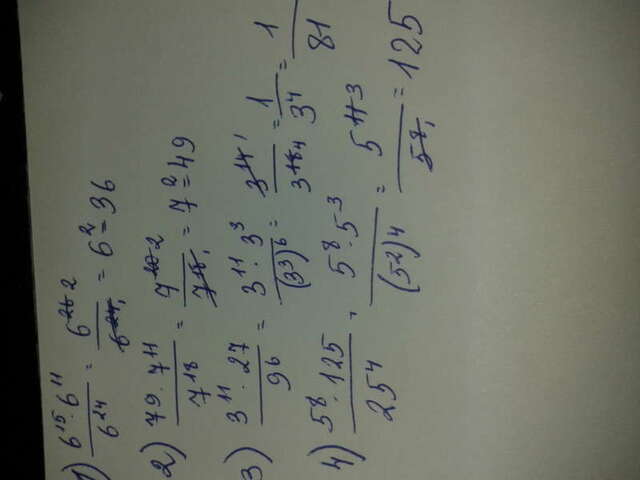 1) 6¹⁵·6¹¹/6²⁴ = 6²⁶ ²/6²⁴ ₁ = 6² = 36
2) 7⁹·7¹¹/7¹⁸ = 7²⁰ ²/7¹⁸ ₁ = 7² = 49
3) 3¹¹·27/9⁶ = 3¹¹·3³/(3³)⁶ = 3¹⁴ ¹/3¹⁸ ₄ = 1/3⁴ = 1/81
4) 5⁸·125/25⁴ = 5⁸·5³/(5²)⁴ = 5¹¹ ³/5⁸ ₁ = 125